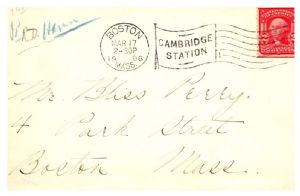 BOSTON
MAR 17
2-30P
MASS.
CAMBRIDGE
STATION
Mr. Bliss Perry.
4 Park Street
Boston Mass.